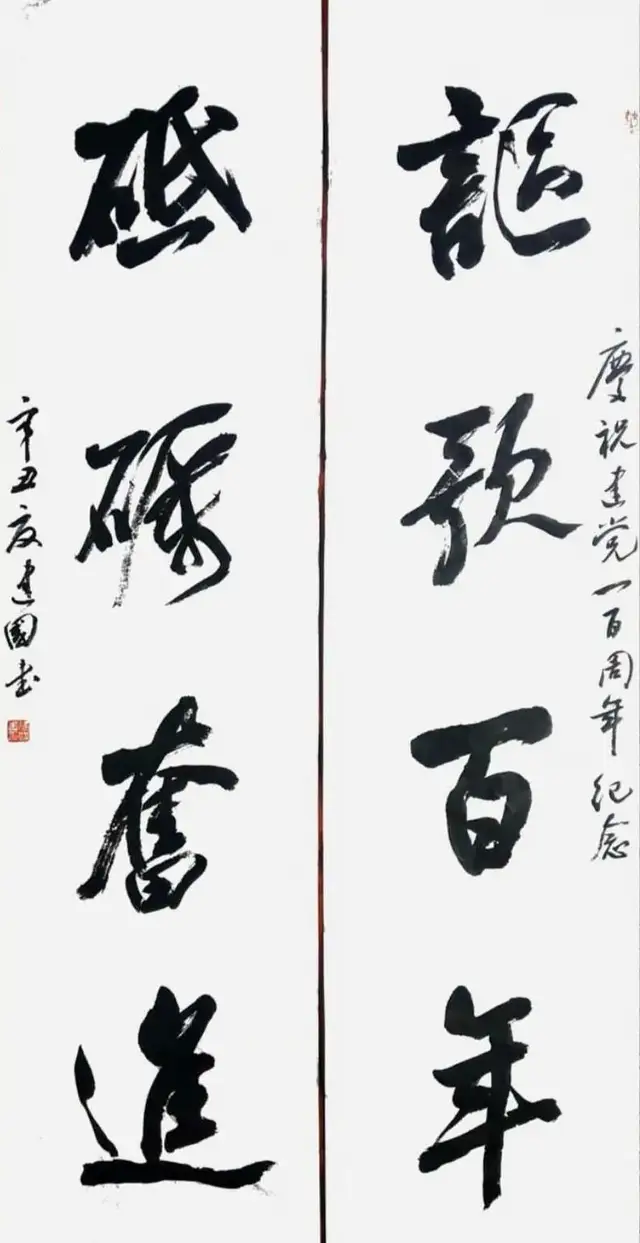 慶祝建党一百周年纪念
謳歌百年
砥礪奮進
辛丑夏建國书